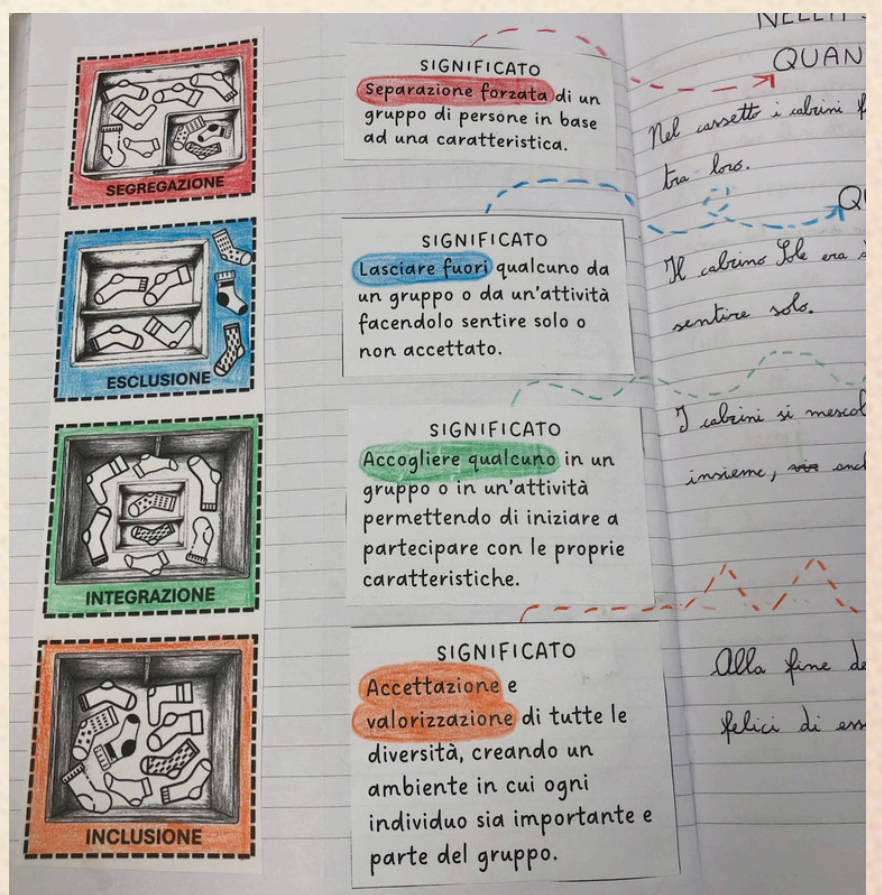 SEGREGAZIONE
SIGNIFICATO
Separazione forzata di un
gruppo di persone in base
ad una caratteristica.
ESCLUSIONE
SIGNIFICATO
Lasciare fuori qualcuno da
un gruppo o da un'attività
facendolo sentire solo o
non accettato.
INTEGRAZIONE
SIGNIFICATO
Accogliere qualcuno in un
gruppo o in un'attività
permettendo di iniziare a
partecipare con le proprie
caratteristiche.
INCLUSIONE
SIGNIFICATO
Accettazione e
valorizzazione di tutte le
diversità, creando un
ambiente in cui ogni
individuo sia importante e
parte del gruppo.
QUAN
Nel cassetto i calzini
tra loro.
Il calzino Sole era
sentire solo.
I calzini si mescol
insieme,
Alla fine de
felici di ess